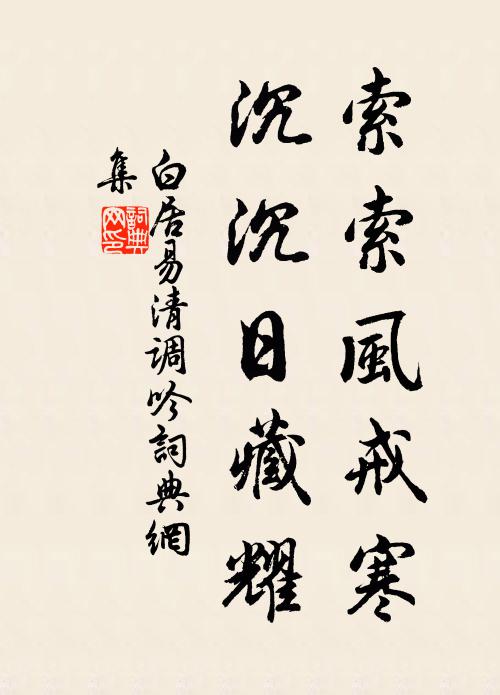 索索風戒寒
沉沉日藏耀
白居易清調吟詞典網
集
詞典
网印